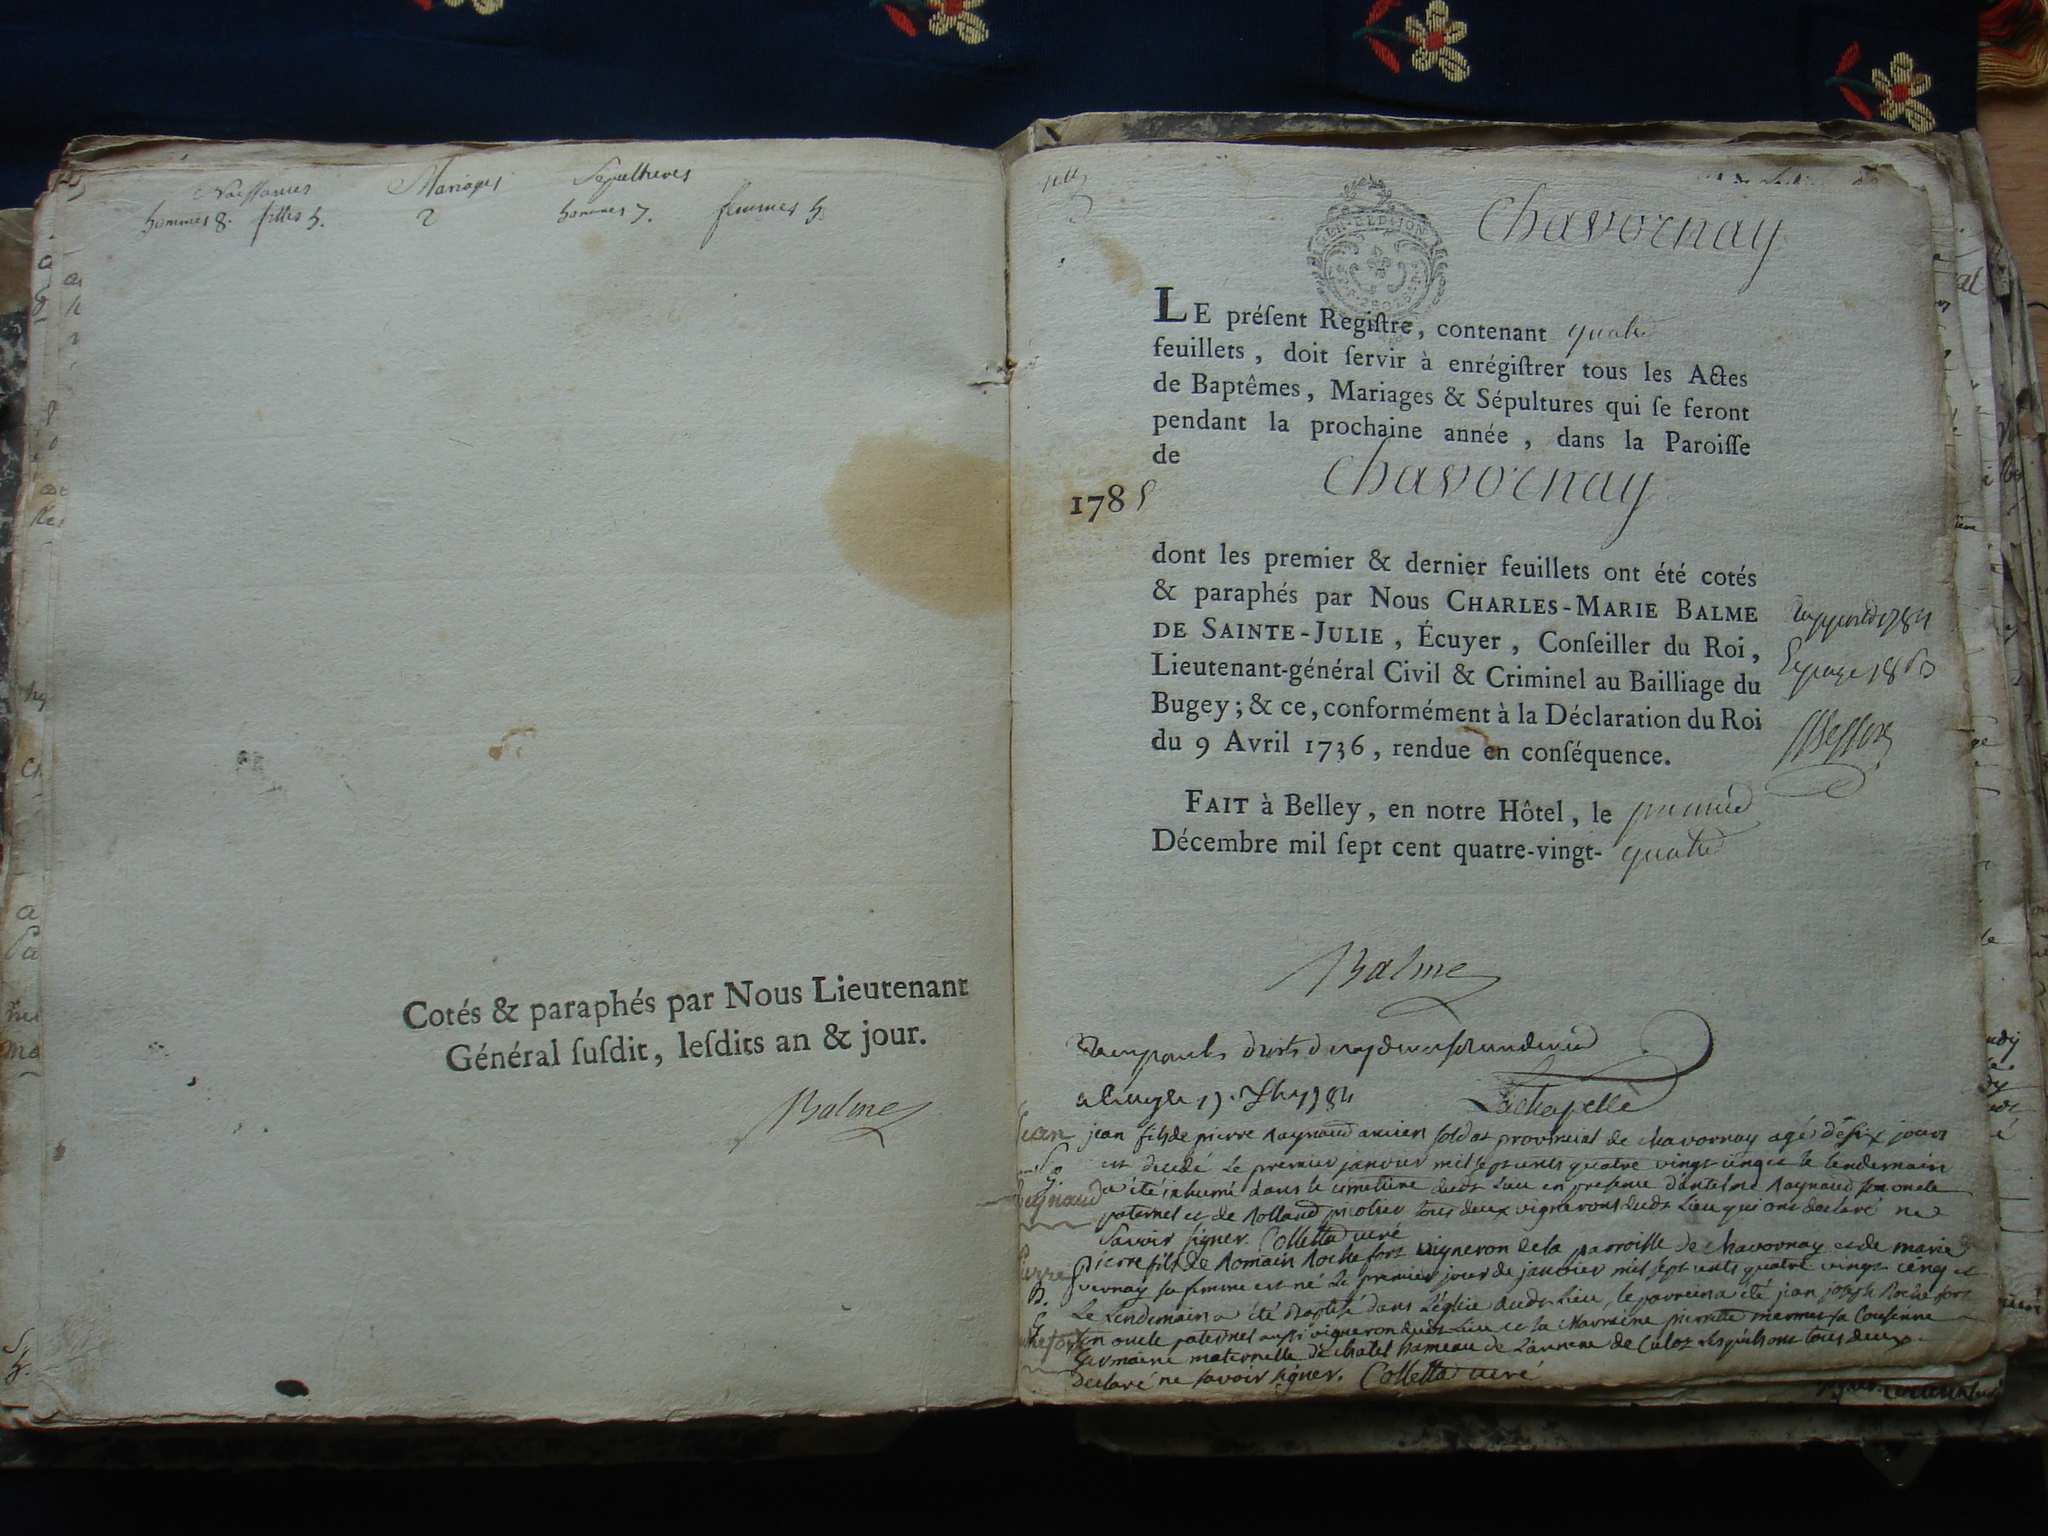 Naissances Mariages Sepultures
hommes 8. filles 5. 2 hommes 7. femmes 5.
Cotés & paraphés par Nous Lieutenant
Général ſuſdit, leſdits an & jour.
Balme
Chavornay
LE préſent Regiſtre, contenant quatre
feuillets, doit ſervir à enrégiſtrer tous les Actes
de Baptêmes, Mariages & Sépultures qui ſe feront
pendant la prochaine année, dans la Paroiſſe
de Chavornay
1785
dont les premier & dernier feuillets ont été cotés
& paraphés par Nous CHARLES-MARIE BALME
DE SAINTE-JULIE, Écuyer, Conſeiller du Roi,
Lieutenant-général Civil & Criminel au Bailliage du
Bugey; & ce, conformément à la Déclaration du Roi
du 9 Avril 1736, rendue en conſéquence.
FAIT à Belley, en notre Hôtel, le premier
Décembre mil ſept cent quatre-vingt-quatre
Balme
Lachapelle
Jean
Raynaud
jean fils de pierre Raynaud ancien soldat provincial de chavornay agé de six jours
est decedé le premier janvier mil sept cents quatre vingt cinq et le lendemain
a été inhumé dans le cimetiere dudt Lieu en presence d'antelme Raynaud son oncle
paternel et de Rolland picolier tous deux vignerons dudt Lieu qui ont declaré ne
savoir signer. Colletta curé
pierre fils de Romain Rochefort vigneron de la parroisse de chavornay et de marie
vernay sa femme est né le premier jour de janvier mil sept cents quatre vingt cinq et
Le Lendemain a été Baptisé dans L'église dudt Lieu, le parrein a été jean joseph Rochefort
son oncle paternel aussi vigneron dudt Lieu et la Marraine pierrette mermet sa Cousinne
Germaine maternelle de chatel hameau de de Culoz Lesquels ont tous deux
declaré ne savoir signer. Colletta curé